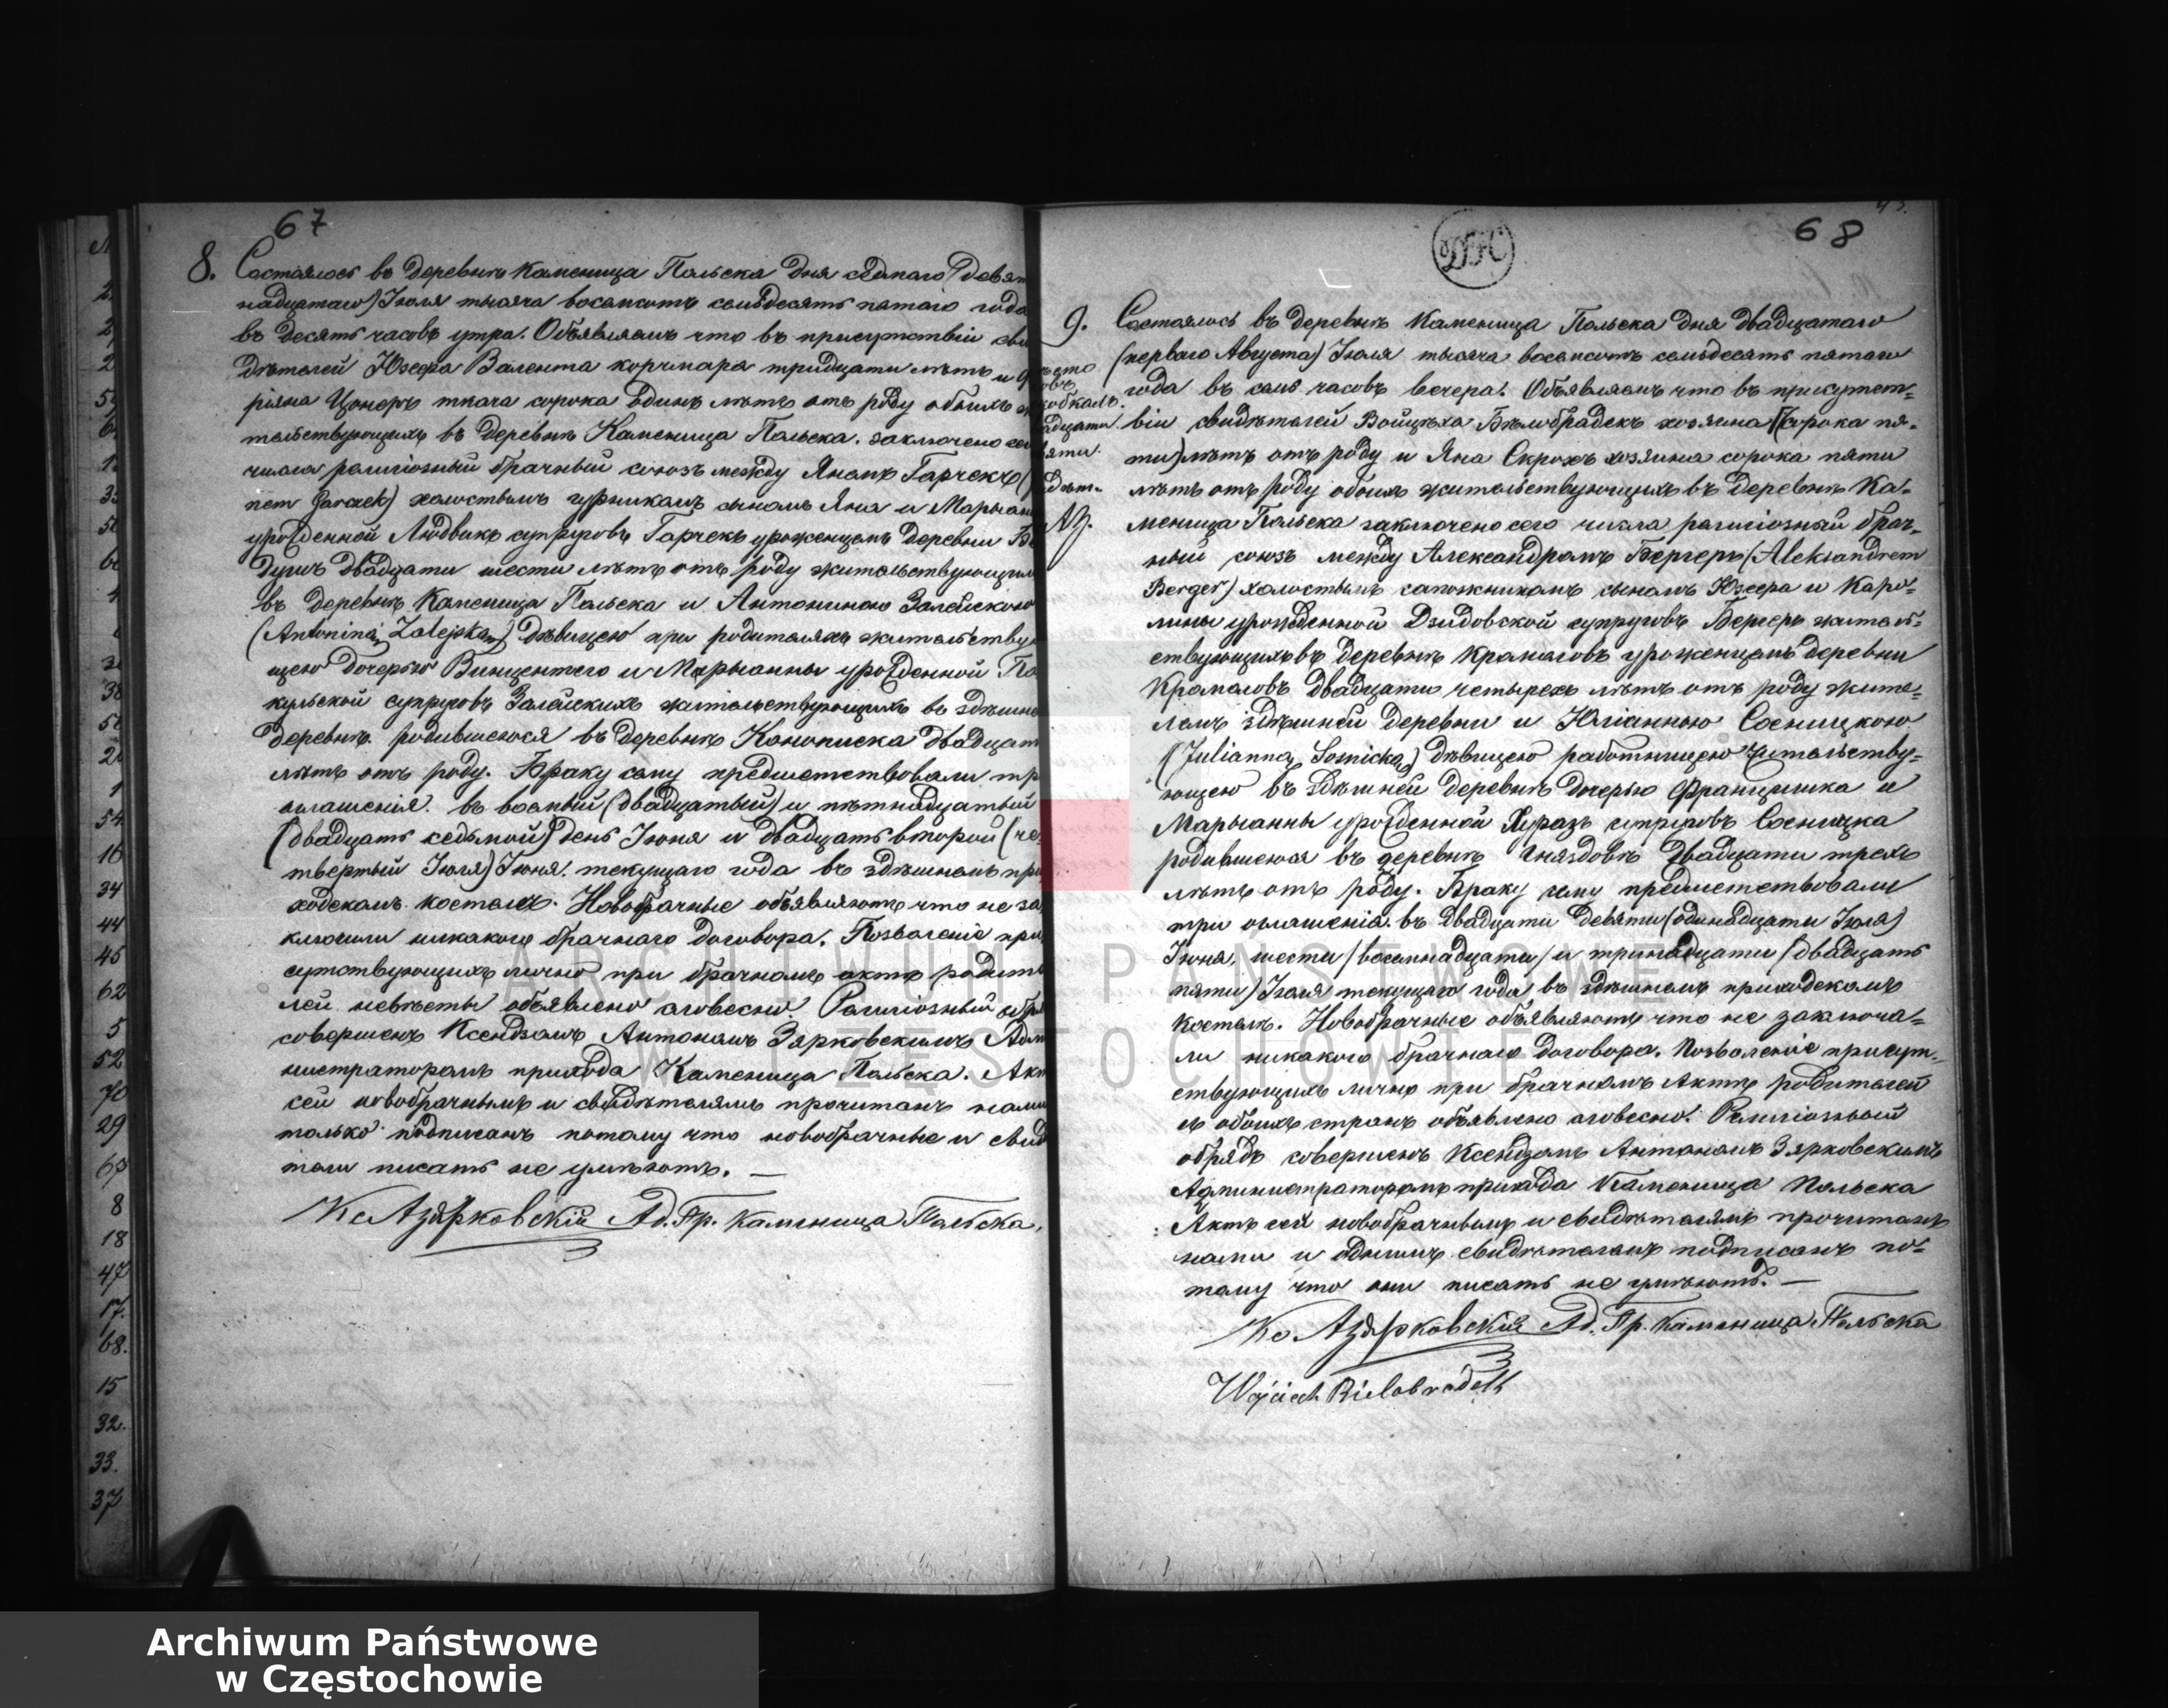 67
8. Состоялось въ деревнѣ Каменица Польска дня седмаго (девят
надцатаго) Іюля тысяча восемсотъ семьдесятъ пятаго года
въ десять часовъ утра. Объявляемъ что въ присутствіи сви
дѣтелей Юзефа Валента корчмара тридцати лѣтъ и
ріяна Цонеръ ткача сорока одинъ лѣтъ отъ роду обоихъ
тельствующихъ въ деревнѣ Каменица Польска. заключено сего
числа религіозный брачный союзъ между Яномъ Гарчекъ (
nem Garczek) холостымъ гурникамъ сыномъ Яна и Марыан
урожденной Людвикъ супруговъ Гарчекъ уроженцемъ деревни
двадцати шести лѣтъ отъ роду жительствующимъ
въ деревнѣ Каменица Польска и Антониною Залейскою
(Antoniną Zalejską) дѣвицею при родителяхъ жительству
щею дочерью Винцентего и Марыанны урожденной По
кульской супруговъ Залейскихъ жительствующихъ въ здѣшне
деревнѣ. родившеюся въ деревнѣ Конописка двадцати
лѣтъ отъ роду. Браку сему предшествовали тр
оглашенія. въ восмый (двадцатый) и пятнадцатый
(двадцать седьмой) день Іюня и двадцать второй (че
твертый Іюля) Іюня. текущаго года въ здѣшнемъ при
ходскомъ костелѣ. Новобрачные объявляютъ что не за
ключили никакого брачнаго договора. Позволеніе при
сутствующихъ лично при брачномъ актѣ родите
лей невѣсты объявлено словесно. Религіозный обря
совершенъ Ксендзомъ Антономъ Зярковскимъ Адм
нистраторомъ прихода Каменица Польска. Акт
сей новобрачнымъ и свидѣтелямъ прочитанъ нами
только подписанъ потому что новобрачные и свид
тели писать не умѣютъ. —
Кс Азярковскій Ад. Пр. Каменица Польска.
68
9. Состоялось въ деревнѣ Каменица Польска дня двадцатаго
(перваго Августа) Іюля тысяча восемсотъ семьдесятъ пятаго
года въ семь часовъ вечера. Объявляемъ что въ присутст=
віи свидѣтелей Войцѣха Бѣлобрадекъ хозяина (сорока пя-
ти) лѣтъ отъ роду и Яна Скрохъ хозяина сорока пяти
лѣтъ отъ роду обоихъ жительствующихъ въ деревнѣ Ка=
меница Польска заключено сего числа религіозный брач-
ный союзъ между Александромъ Бергеръ (Aleksandrem
Berger) холостымъ сапожникамъ сыномъ Юзефа и Каро=
лины урожденной Дзидовской супруговъ Бергеръ житель=
ствующихъ въ деревнѣ Кромоловъ уроженцемъ деревни
Кромоловъ двадцати четырехъ лѣтъ отъ роду жите=
лемъ здѣшней деревни и Юліанною Сосницкою
(Julianną Sosnicką) дѣвицею работницею жительству=
ющею въ здѣшней деревнѣ дочерью Францишка и
Марыанны урожденной супруговъ Сосницка
родившеюся въ деревнѣ Гняздовъ двадцати трехъ
лѣтъ отъ роду. Браку сему предшествовали
три оглашенія. въ двадцати девяти (одинадцати Іюля)
Іюня, шести (восемнадцати) и тринадцати (двадцать
пяти) Іюля текущаго года въ здѣшнемъ приходскомъ
Костелѣ. Новобрачные объявляютъ что не заключа=
ли никакого брачнаго договора. Позволеніе присут-
ствующихъ лично при брачномъ Актѣ родителей
съ обоихъ странъ объявлено словесно. Религіозный
обрядъ совершенъ Ксендзомъ Антономъ Зярковскимъ
Администраторомъ прихода Каменица Польска
Актъ сей новобрачнымъ и свидѣтелямъ прочитанъ
нами и однимъ свидѣтелемъ подписанъ по=
тому что они писать не умѣютъ. —
Кс Азярковскій Ад. Пр. Каменица Польска
Wojciech Bielobradek
ARCHIWUM PAŃSTWOWE
W CZĘSTOCHOWIE
Archiwum Państwowe
w Częstochowie